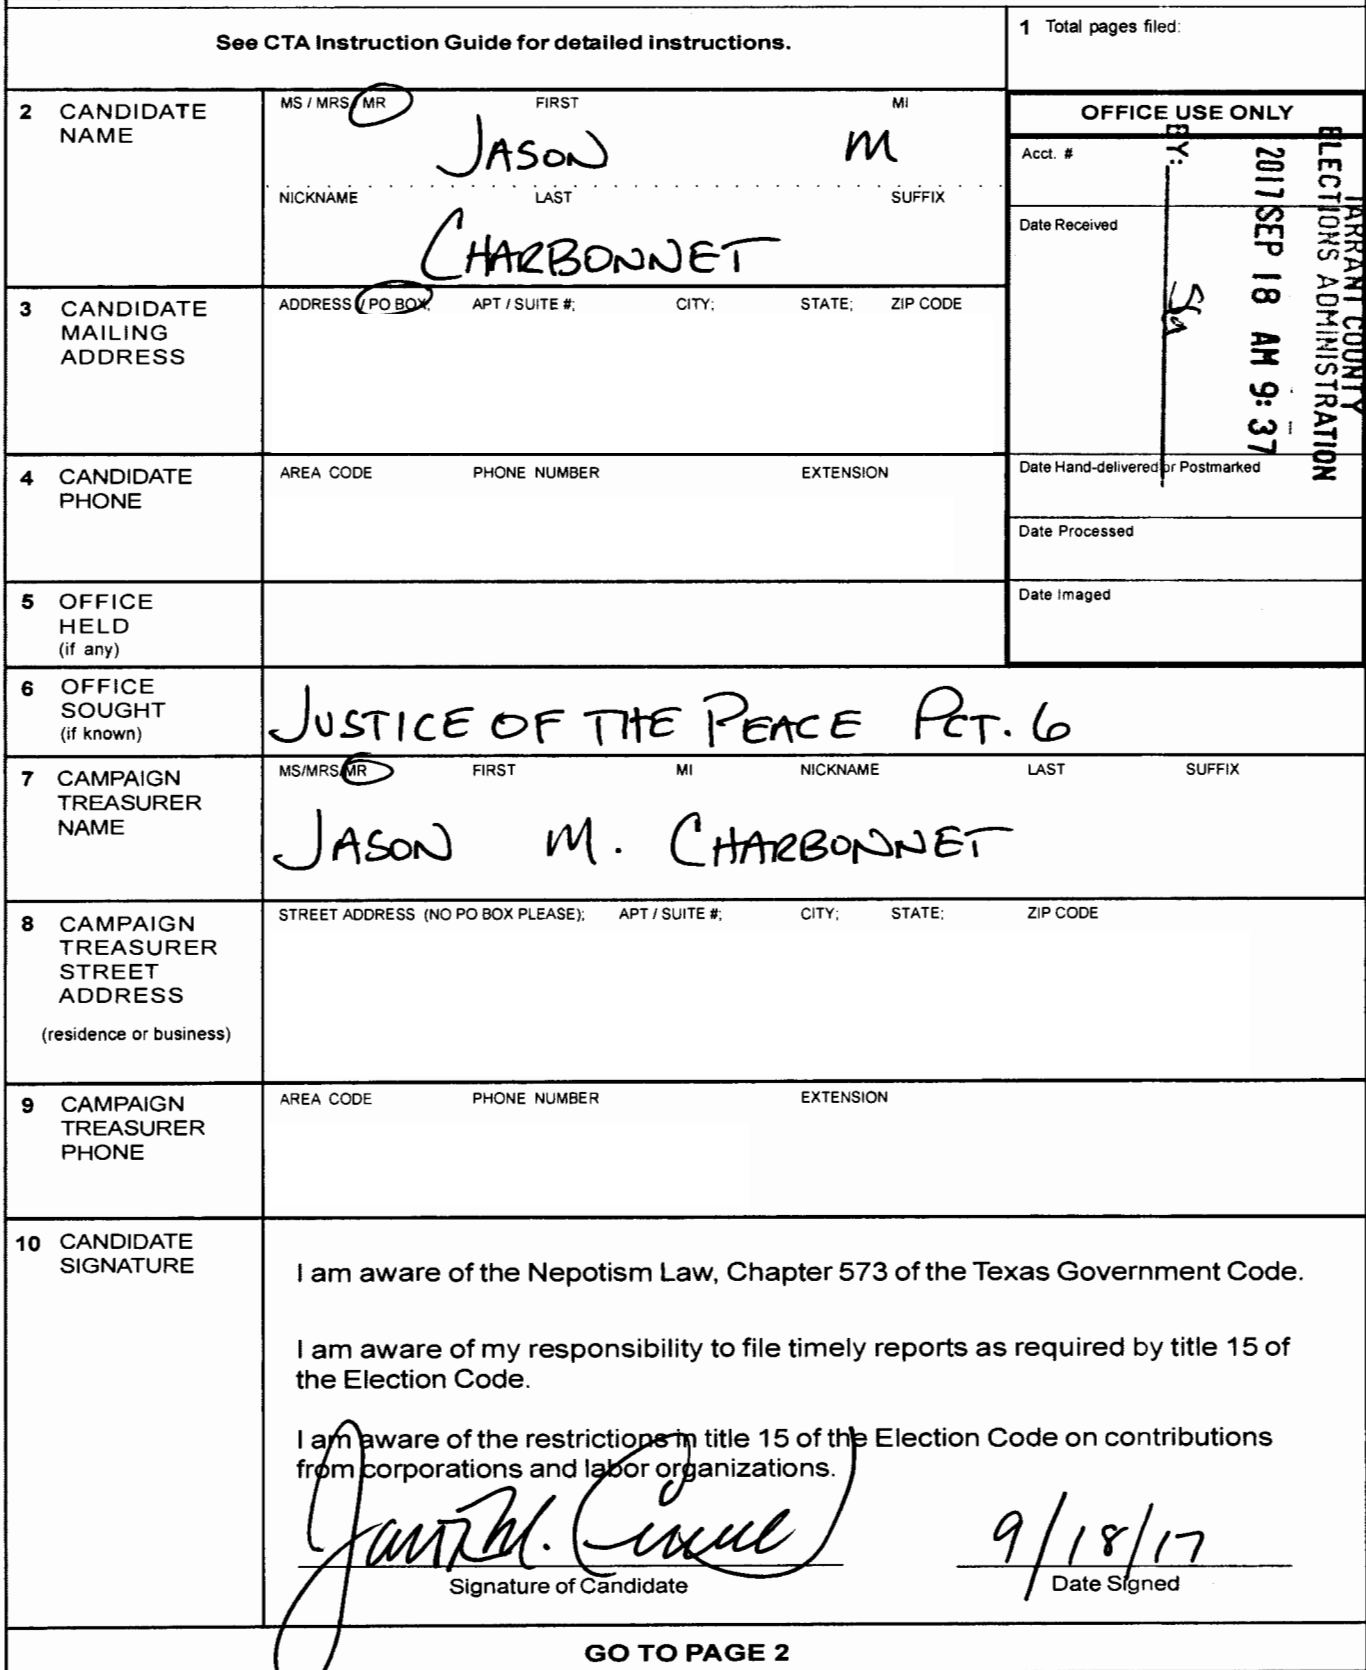 See CTA Instruction Guide for detailed instructions.
1 Total pages filed:
2 CANDIDATE NAME
MS / MRS / MR FIRST MI
JASON M
NICKNAME LAST SUFFIX
CHARBONNET
OFFICE USE ONLY
Acct. #
Date Received
Date Hand-delivered or Postmarked
Date Processed
Date Imaged
TARRANT COUNTY
ELECTIONS ADMINISTRATION
2017 SEP 18 AM 9:37
BY:
3 CANDIDATE MAILING ADDRESS
ADDRESS / PO BOX; APT / SUITE #; CITY; STATE; ZIP CODE
4 CANDIDATE PHONE
AREA CODE PHONE NUMBER EXTENSION
5 OFFICE HELD (if any)
6 OFFICE SOUGHT (if known)
JUSTICE OF THE PEACE PCT. 6
7 CAMPAIGN TREASURER NAME
MS/MRS/MR FIRST MI NICKNAME LAST SUFFIX
JASON M. CHARBONNET
8 CAMPAIGN TREASURER STREET ADDRESS
(residence or business)
STREET ADDRESS (NO PO BOX PLEASE); APT / SUITE #; CITY; STATE; ZIP CODE
9 CAMPAIGN TREASURER PHONE
AREA CODE PHONE NUMBER EXTENSION
10 CANDIDATE SIGNATURE
I am aware of the Nepotism Law, Chapter 573 of the Texas Government Code.
I am aware of my responsibility to file timely reports as required by title 15 of
the Election Code.
I am aware of the restrictions in title 15 of the Election Code on contributions
from corporations and labor organizations.
9/18/17
Signature of Candidate Date Signed
GO TO PAGE 2